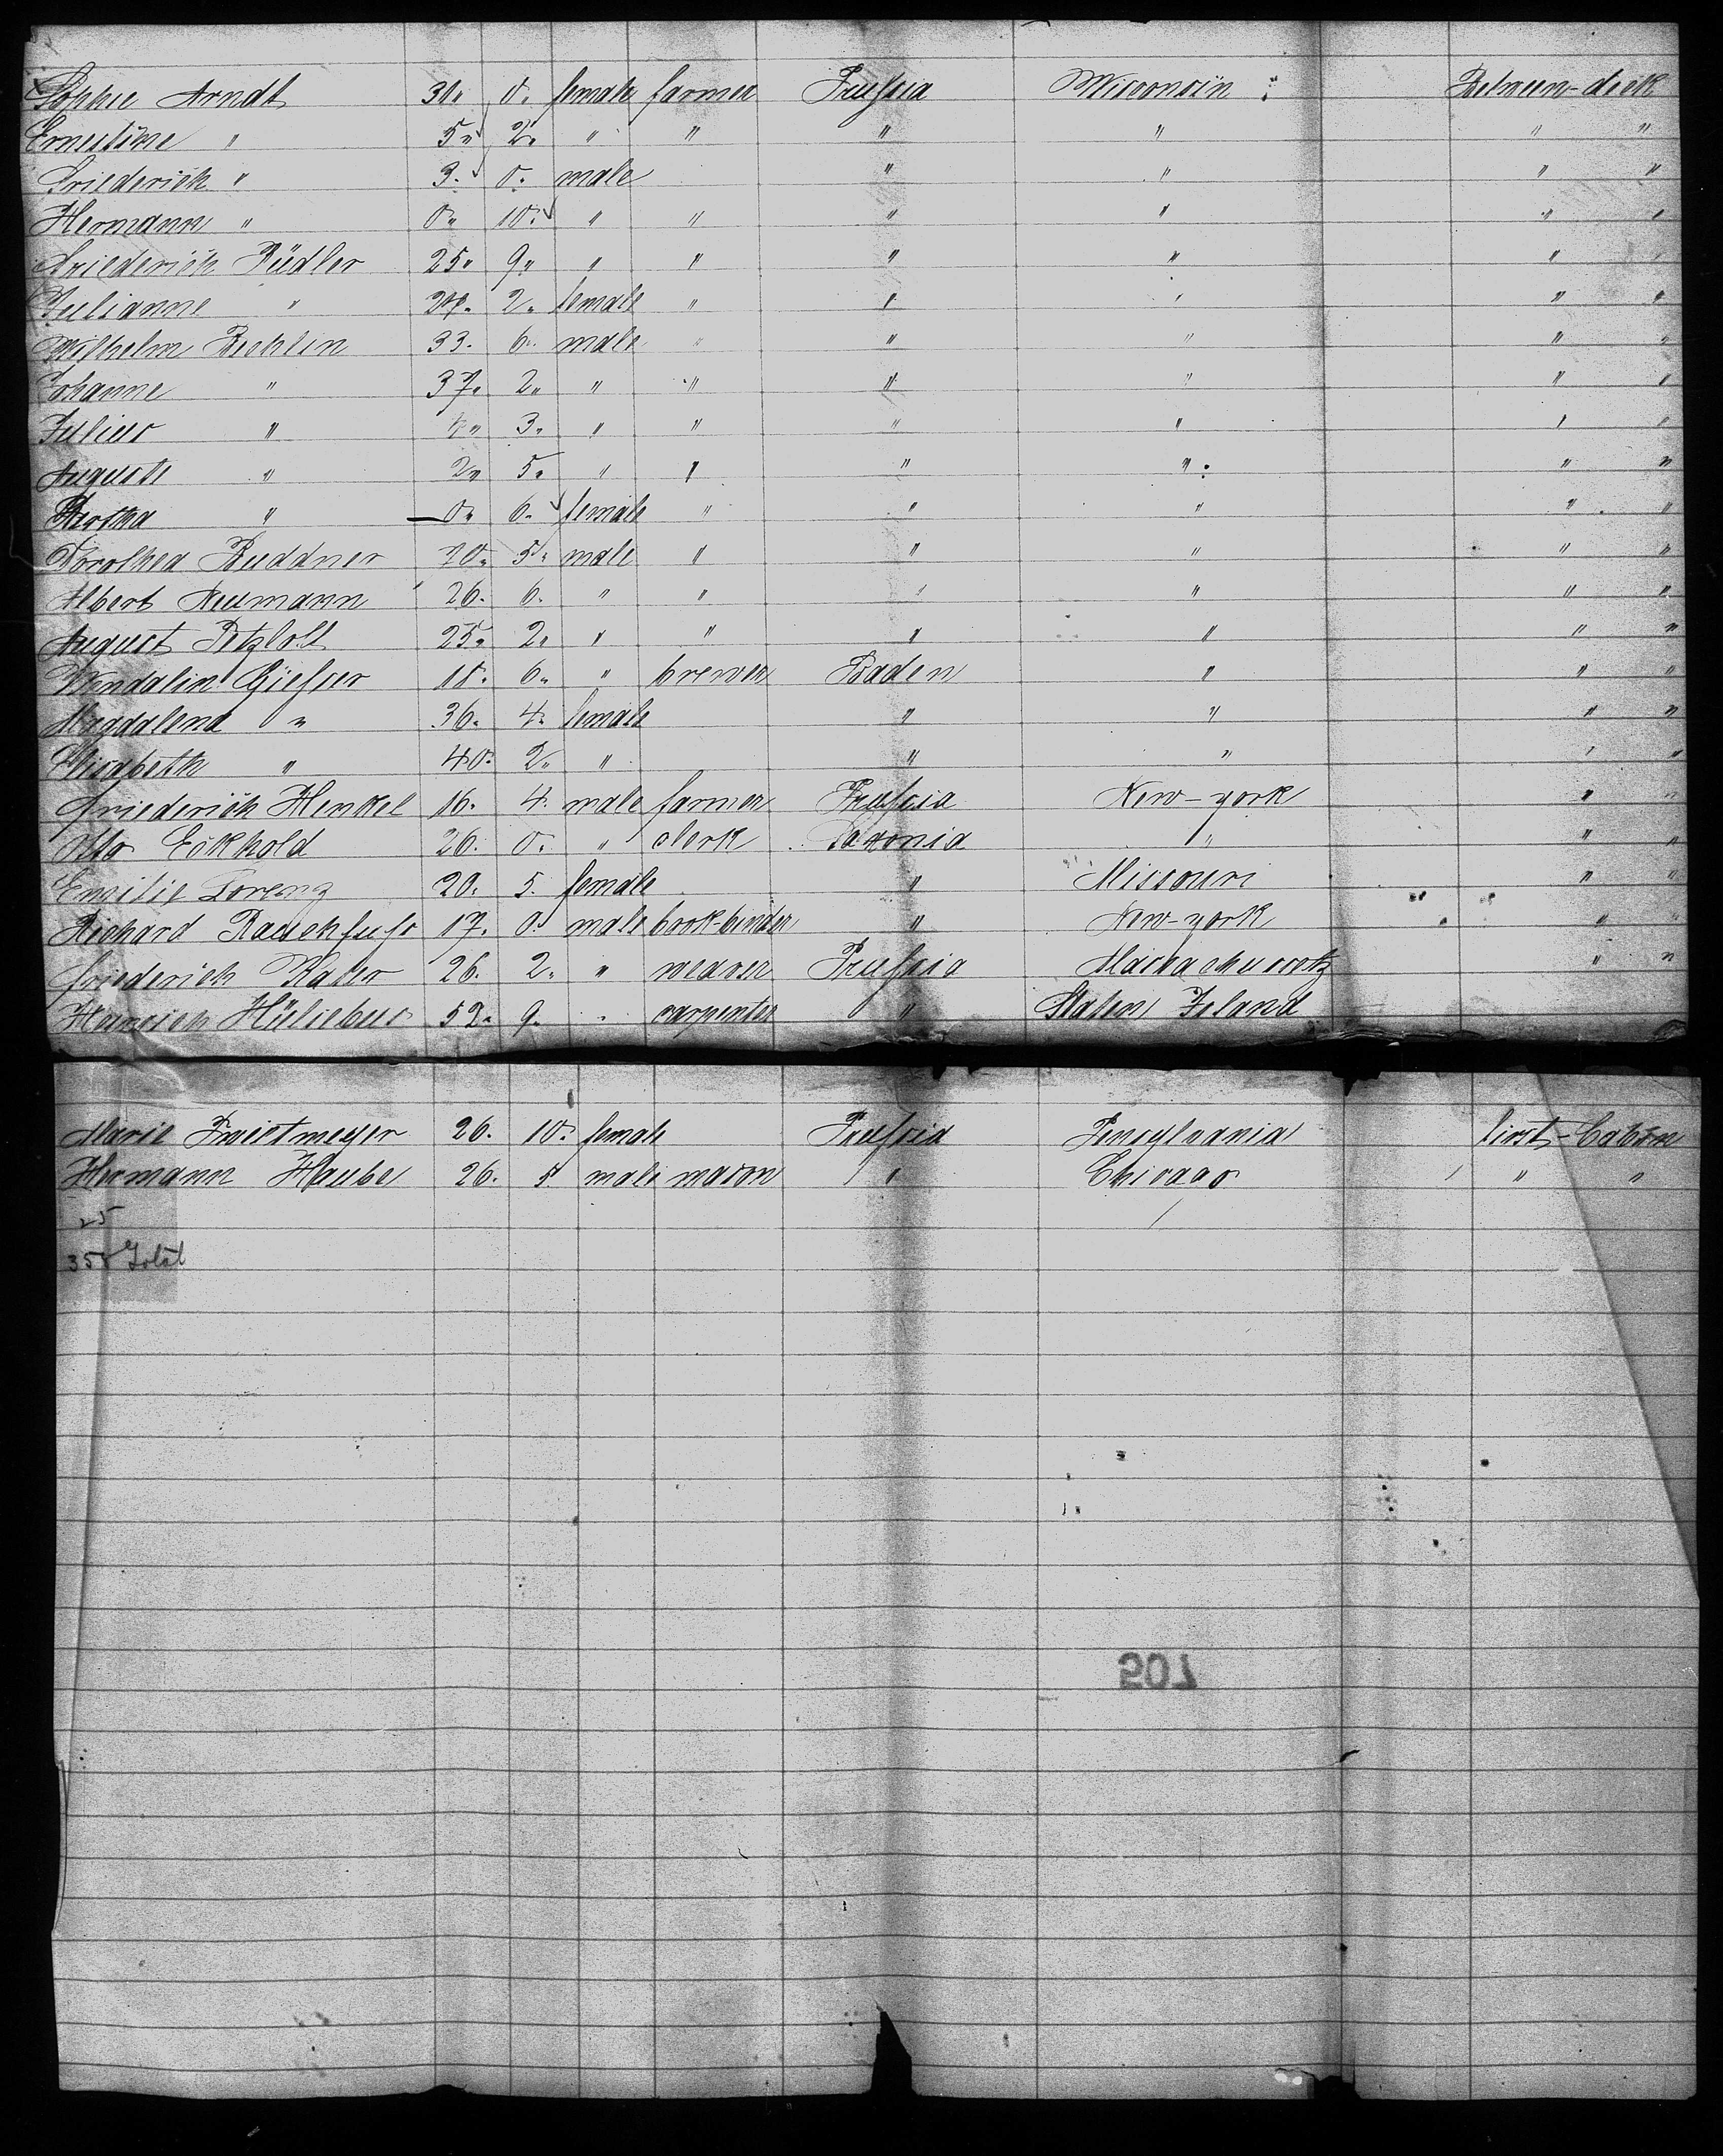 Sophie Arndt 31. 0. female farmer Prussia Wisconsin Between-deck
Ernestine " 5" 2" " " " " " "
Friederich " 3. 0. male " " " "
Hermann " 0" 10. " " " " " "
Friederich Büdler 25" 9" " " " " " "
Julianne " 2. female " " " " "
Wilhelm Bechlin 33. 6. male " " " " "
Johanne " 37. 2" " " " " " "
Julius " 4" 3" " " " " " "
Auguste " 2" 5" " " " " " "
Bertha " 0" 6. female " " " " "
Dorothea Buddner 70. 5. male " " " " "
Albert Neumann 26. 6. " " " " " "
August Petzlolt 25" 2" " " " " " "
Wendalin Giesser 18. 6" " brewer Baden " " "
Magdalena " 36. 4. female " " " "
Elisabeth " 40. 2" " " " " "
Friederich Henkel 16. 4. male farmer Prussia New-york " "
Otto Eckhold 26. 0. " clerk Saxonia " " "
Emilie Lorenz 20. 5. female " Missouri " "
Richard Rauschfuss 17. 0. male book-binder " New-york " "
Friederich Kater 26. 2" " weaver Prussia Machachusetz " "
Heinrich Hüliebus 52. 9. " carpenter " Staten Island
Marie Twietmeyer 26. 10. female Prussia Pensylvania first-Cabin
Hermann Haube 26. 5. male mason " Chicago " "
25
358 Total
507